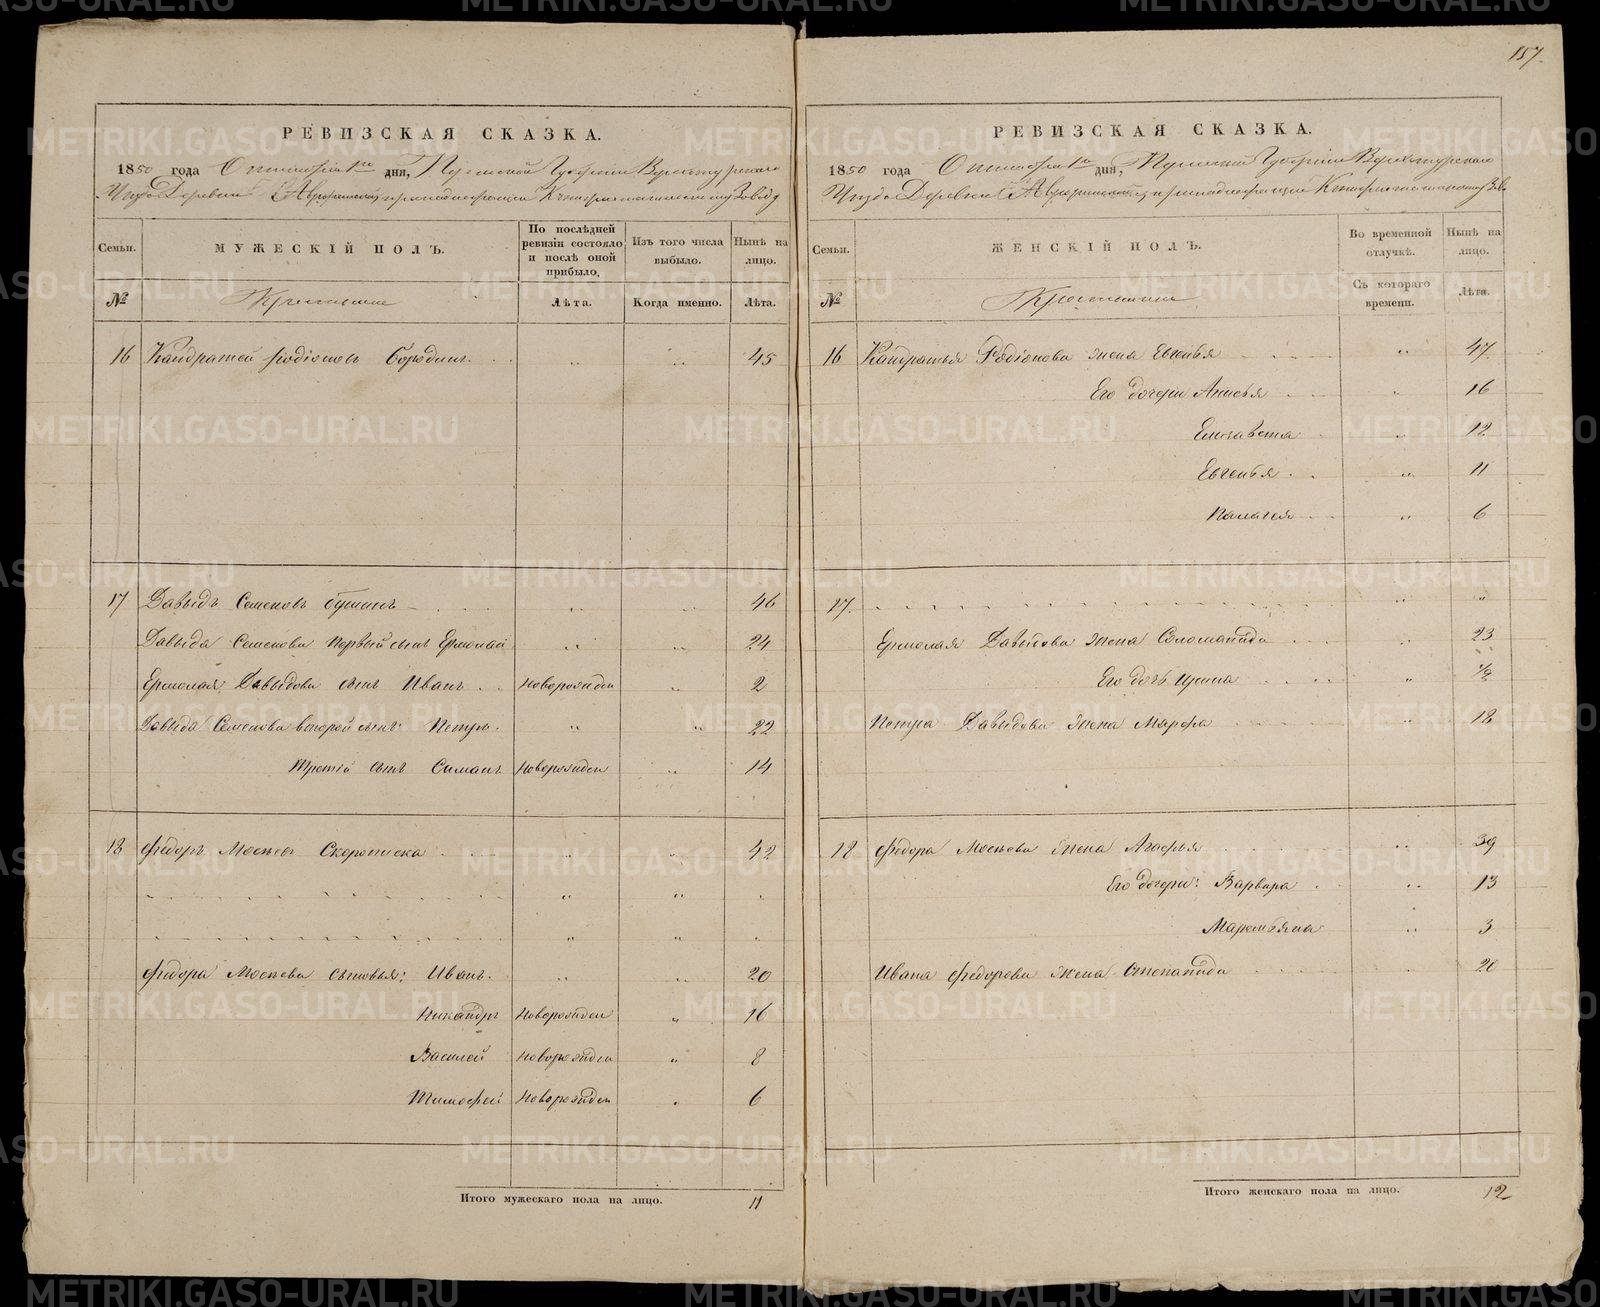 157.
РЕВИЗСКАЯ СКАЗКА.
1850 года Октября 1го дня, Пермской Губернии Верхотурского
Уезда Деревни
МУЖЕСКІЙ ПОЛЪ.
Семьи.
№
Крестьяне
По послѣдней ревизіи состояло и послѣ оной прибыло.
Лѣта.
Изъ того числа выбыло.
Когда именно.
Нынѣ на лицо.
Лѣта.
16 Кандратей Родіоновъ Бородинъ. 45
17 Давыдъ Семеновъ 46
Давыда Семенова первый сынъ Ермолай 24
Ермолая Давыдова сынъ Иванъ новорожден 2
Давыда Семенова второй сынъ: Петръ. 22
Третій сынъ Симанъ новорожден 14
18 Федоръ Мосѣевъ 42
Федора Мосѣева сыновья: Иванъ. 20
Никандръ новорожден 16
Василей новорожден 8
Тимофей новорожден 6
Итого мужескаго пола на лицо. 11
РЕВИЗСКАЯ СКАЗКА.
1850 года Октября 1го дня, Пермской Губерніи Верхотурского
Уезда Деревни
Семьи.
№
ЖЕНСКІЙ ПОЛЪ.
Крестьянки
Во временной отлучкѣ.
Съ котораго времени.
Нынѣ на лицо.
Лѣта.
16 Кандратья Родіонова жена Евгенья 47
Его дочери Анисья 16
Елизавета 12
Евгенья 11
Палагея 6
17.
Ермолая Давыдова жена Соломанида 23
Его дочь Ирина 1/2
Петра Давыдова жена Марфа 18
18 Федора Мосѣева жена Агафья 39
Его дочери: Варвара 13
Маремьяна 3
Ивана Федорова жена Степанида 20
Итого женскаго пола на лицо. 12
METRIKI.GASO-URAL.RU